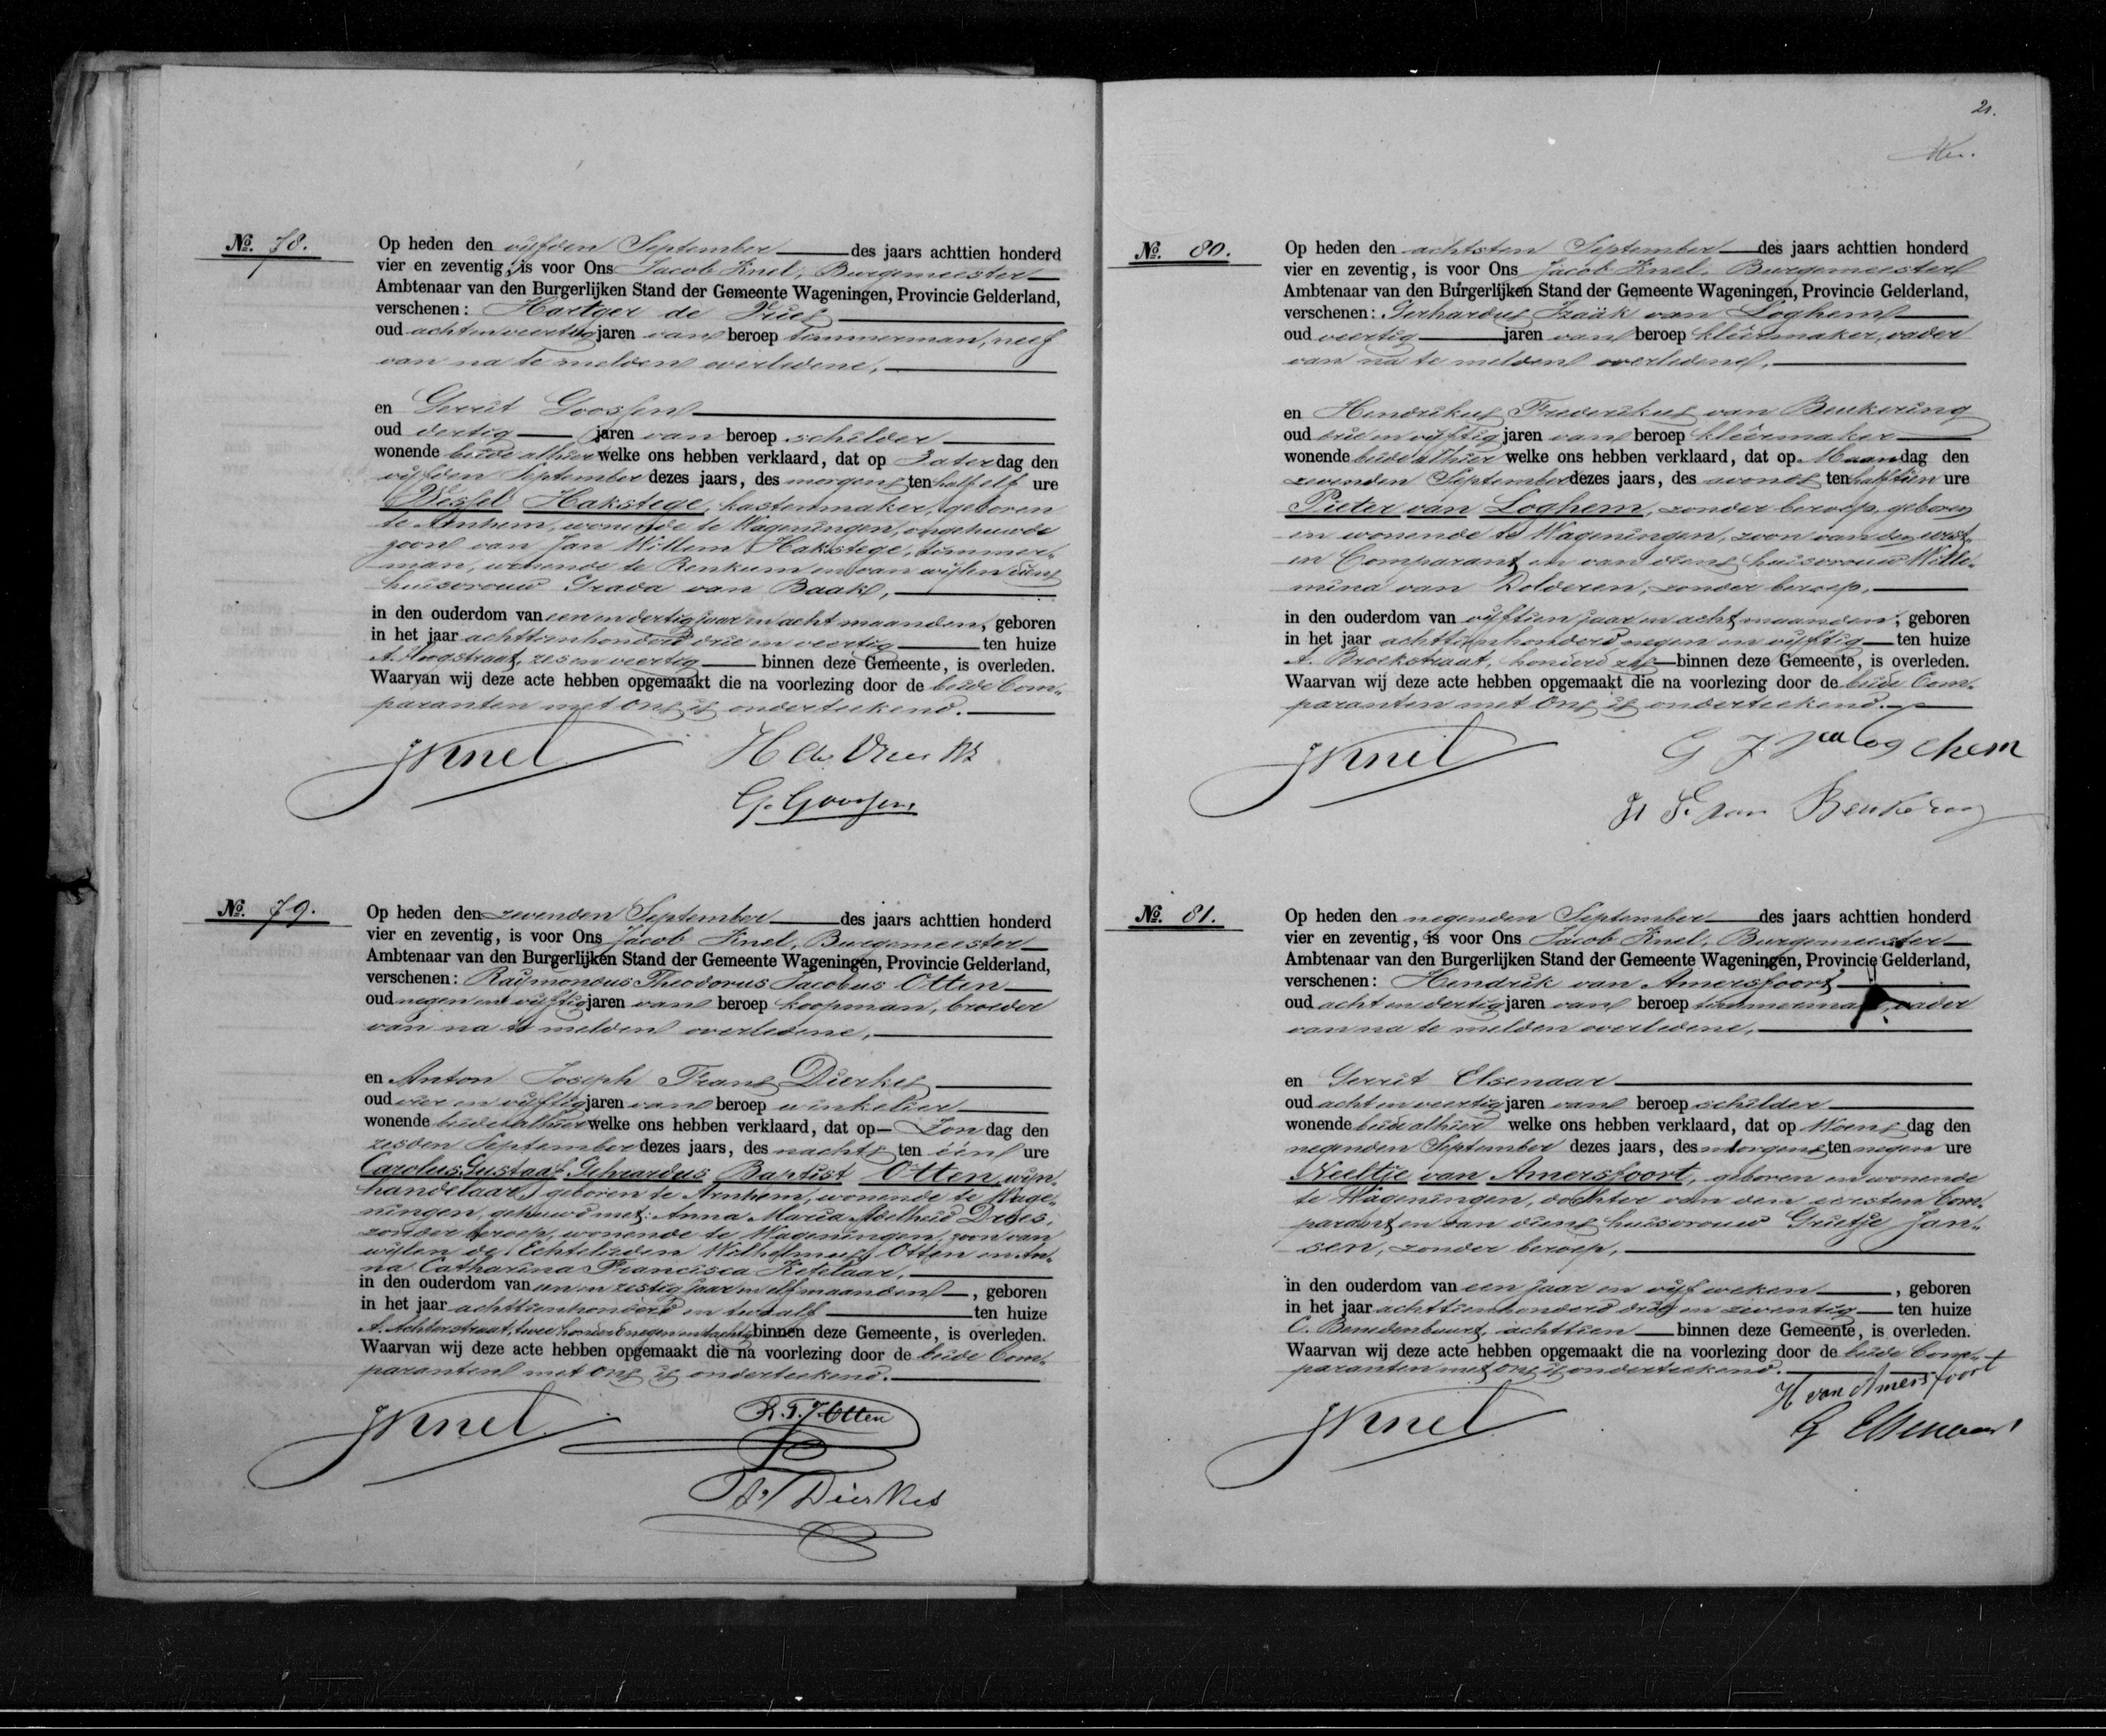 No. 78.
Op heden den vijfden September des jaars achttien honderd
vier en zeventig, is voor Ons Jacob Knel, Burgemeester
Ambtenaar van den Burgerlijken Stand der Gemeente Wageningen, Provincie Gelderland,
verschenen: Hartger de
oud acht en veertig jaren van beroep timmerman, neef
van na te melden overledene,
en Gerrit Goossens
oud dertig jaren van beroep schilder
wonende beide alhier welke ons hebben verklaard, dat op Zaterdag den
vijfden September dezes jaars, des morgens ten half elf ure
Wessel Hakstege, kastenmaker, geboren
te Arnhem, wonende te Wageningen, ongehuwde
zoon van Jan Willem Hakstege, timmer-
man, wonende te Renkum en van wijlen diens
huisvrouw Grada van Baak,
in den ouderdom van een en dertig jaar en acht maanden, geboren
in het jaar achttienhonderd drie en veertig ten huize
A. Hoogstraat, zes en veertig binnen deze Gemeente, is overleden.
Waarvan wij deze acte hebben opgemaakt die na voorlezing door de beide Com-
paranten met Ons is onderteekend.
JKnel H de
G. Goossens
No. 79.
Op heden den zevenden September des jaars achttien honderd
vier en zeventig, is voor Ons Jacob Knel, Burgemeester
Ambtenaar van den Burgerlijken Stand der Gemeente Wageningen, Provincie Gelderland,
verschenen: Raijmondus Theodorus Jacobus Otten
oud negen en vijftig jaren van beroep koopman, broeder
van na te melden overledene,
en Anton Joseph Frans Dierkes
oud vier en vijftig jaren van beroep winkelier
wonende beide alhier welke ons hebben verklaard, dat op Zondag den
zesden September dezes jaars, des nachts ten één ure
Carolus Gustaaf Gehrardus Baptist Otten, wijn-
handelaar, geboren te Arnhem, wonende te Wage-
ningen, gehuwd met: Anna Maria Adelheid Drees,
zonder beroep, wonende te Wageningen, zoon van
wijlen de Echtelieden Wilhelmus Otten en An-
na Catharina Francisca Ketelaar,
in den ouderdom van een en zestig jaar en elf maanden, geboren
in het jaar achttienhonderd en twaalf ten huize
A. Achterstraat, twee honderd negen en tachtig binnen deze Gemeente, is overleden.
Waarvan wij deze acte hebben opgemaakt die na voorlezing door de beide Com-
paranten met Ons is onderteekend.
JKnel R.T.J. Otten
Dierkes
21.
No. 80.
Op heden den achtsten September des jaars achttien honderd
vier en zeventig, is voor Ons Jacob Knel, Burgemeester
Ambtenaar van den Burgerlijken Stand der Gemeente Wageningen, Provincie Gelderland,
verschenen: Gerhardus Izaäk van Loghem
oud veertig jaren van beroep kleêrmaker, vader
van na te melden overledene,
en Hendrikus Frederikus van Beukering
oud drie en vijftig jaren van beroep kleêrmaker
wonende beide alhier welke ons hebben verklaard, dat op Maandag den
zevenden September dezes jaars, des avonds ten half tien ure
Pieter van Loghem, zonder beroep, geboren
en wonende te Wageningen, zoon van den eerst-
en Comparant en van diens huisvrouw Wille-
mina van Dolderen, zonder beroep,
in den ouderdom van vijftien jaar en acht maanden, geboren
in het jaar achttienhonderd negen en vijftig ten huize
A. Broekstraat, honderd zes binnen deze Gemeente, is overleden.
Waarvan wij deze acte hebben opgemaakt die na voorlezing door de beide Com-
paranten met Ons is onderteekend.
JKnel G J van Loghem
H F. van Beukering
No. 81.
Op heden den negenden September des jaars achttien honderd
vier en zeventig, is voor Ons Jacob Knel, Burgemeester
Ambtenaar van den Burgerlijken Stand der Gemeente Wageningen, Provincie Gelderland,
verschenen: Hendrik van Amersfoort
oud acht en dertig jaren van beroep timmerman, vader
van na te melden overledene,
en Gerrit Elsenaar
oud acht en veertig jaren van beroep schilder
wonende beide alhier welke ons hebben verklaard, dat op Woensdag den
negenden September dezes jaars, des morgens ten negen ure
Neeltje van Amersfoort, geboren en wonende
te Wageningen, dochter van den eersten Com-
parant en van diens huisvrouw Grietje Jan-
sen, zonder beroep,
in den ouderdom van een jaar en vijf weken, geboren
in het jaar achttienhonderd drie en zeventig ten huize
C. Benedenbuurt, achttien binnen deze Gemeente, is overleden.
Waarvan wij deze acte hebben opgemaakt die na voorlezing door de beide Com-
paranten met Ons is onderteekend.
H van Amersfoort
JKnel G Elsenaar